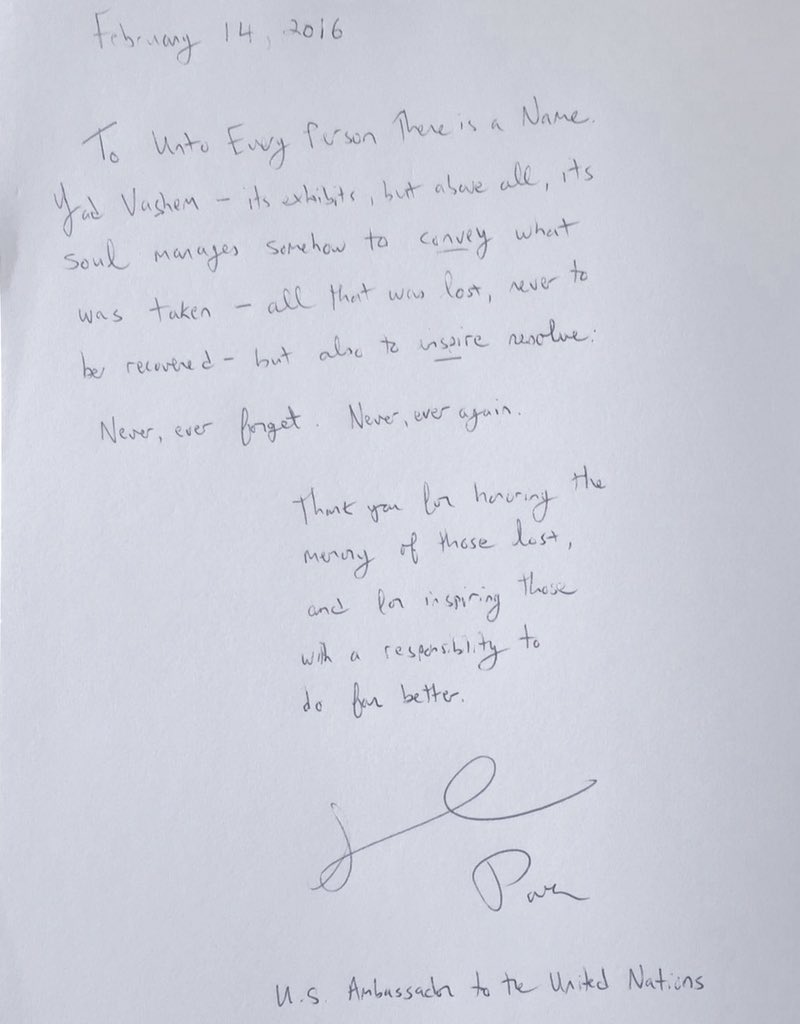 February 14, 2016
To Unto Every Person There is a Name.
Yad Vashem - its exhibits, but above all, its
soul manages somehow to convey what
was taken - all that was lost, never to
be recovered - but also to inspire resolve:
Never, ever forget. Never, ever again.
Thank you for honoring the
memory of those lost,
and for inspiring those
with a responsiblity to
do far better.
U.S. Ambassador to the United Nations